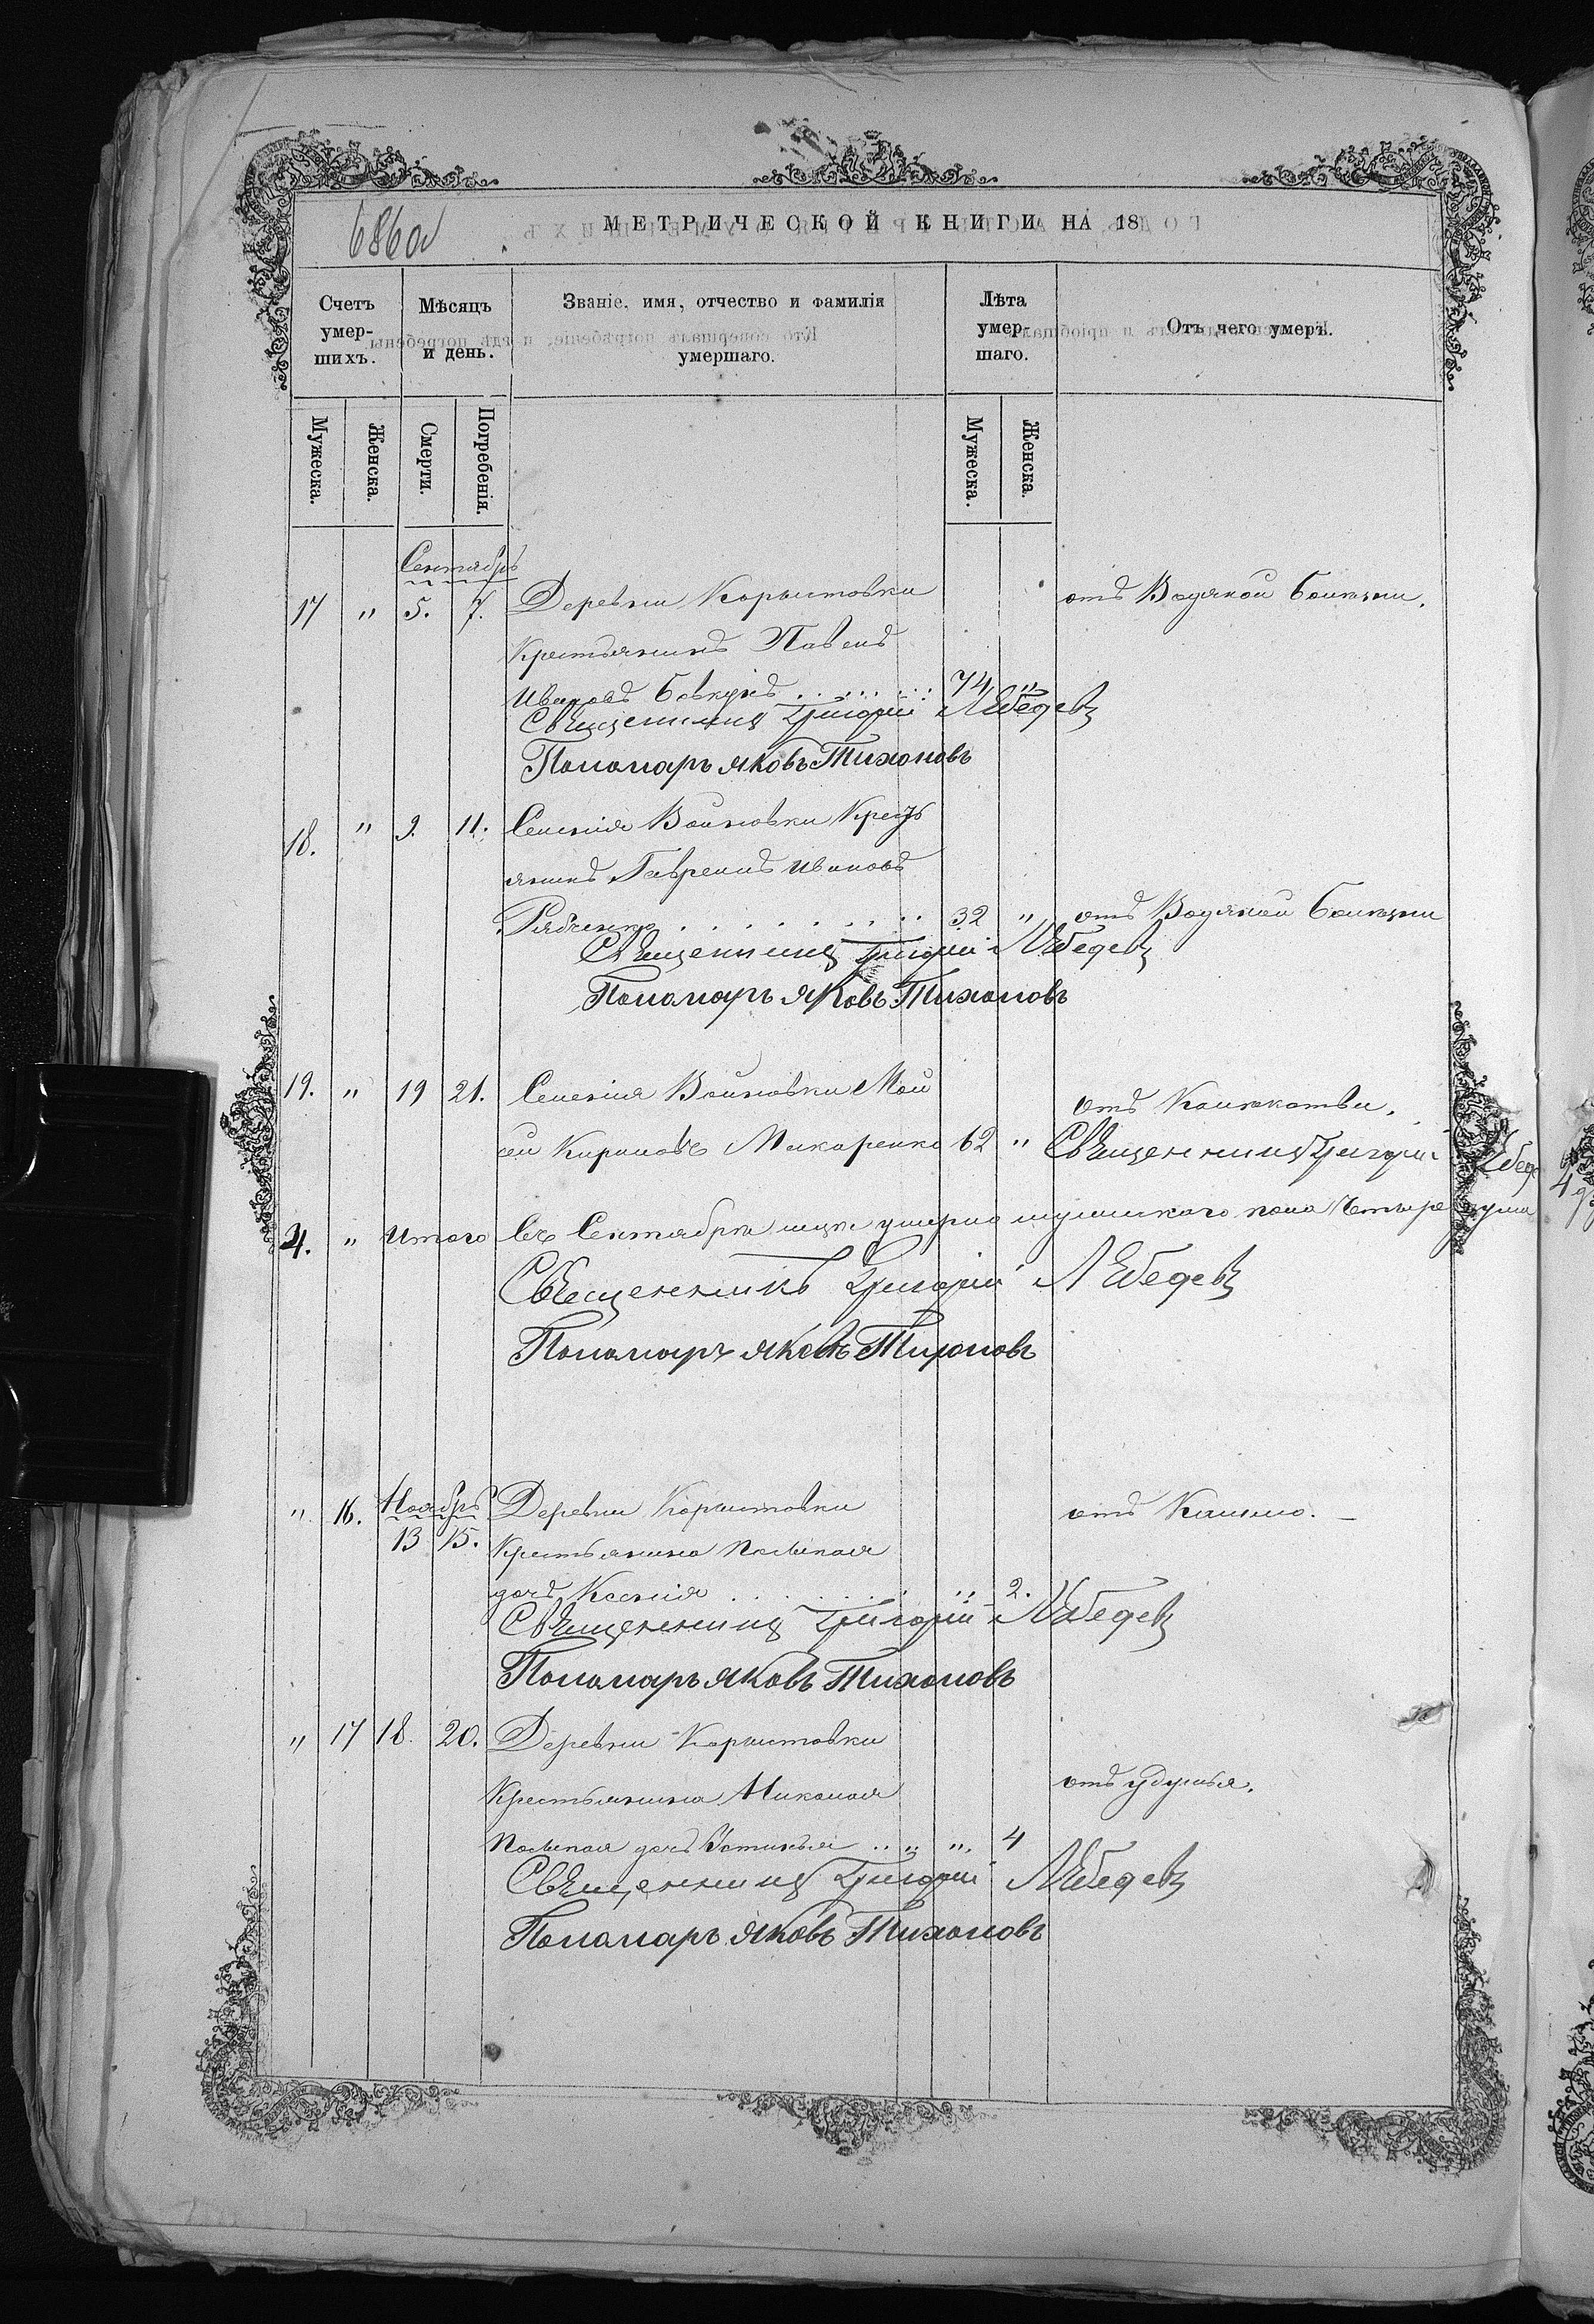 686об
МЕТРИЧЕСКОЙ КНИГИ НА 18
Счетъ умер-шихъ.
Мѣсяцъ и день.
Званіе, имя, отчество и фамилія умершаго.
Лѣта умер-шаго.
Отъ чего умеръ.
Мужеска.
Женска.
Смерти.
Погребенія.
Мужеска.
Женска.
Сентябрь
17 " 5. 7. Деревни Корытовки отъ Водяной болѣзни.
Крестьянинъ Павелъ
Ивановъ Бовкунъ 74 "
Священникъ Григорій Лебедевъ
Пономарь Яковъ Тихоновъ
18. " 9. 11. Селенія Войновки Крест
янинъ Гавреилъ Ивановъ
Рябченко 32 " отъ Водяной болѣзни
Священникъ Григорій Лебедевъ
Пономарь Яковъ Тихоновъ
19. " 19 21. Селенія Войновки Мои
сей Макаренко 62 "
Священникъ Григорій Лебедевъ
4. " Итого въ Сентябрѣ умерло мужескаго пола четыре души
Священникъ Григорій Лебедевъ
Пономарь Яковъ Тихоновъ
Ноябрь
" 16. 13 15. Деревни Корытовки отъ Кашлю.
Крестьянина
дочь Ксенія " 2.
Священникъ Григорій Лебедевъ
Пономарь Яковъ Тихоновъ
" 17 18. 20. Деревни Корытовки
Крестьянина Николая отъ удушья.
дочь Устинья " 4
Священникъ Григорій Лебедевъ
Пономарь Яковъ Тихоновъ